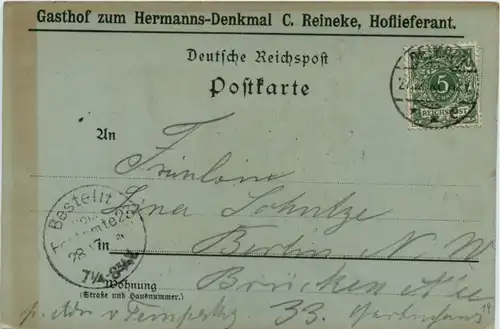 Gasthof zum Hermanns-Denkmal C. Reineke, Hoflieferant.
Deutsche Reichspost
Postkarte
5
REICHSPOST
An
Fräulein
Lina Schultze
Bestellt
28
7¼-8½
in Berlin N. W.
Wohnung
(Straße und Hausnummer.)
Brücken Allee
33.
p. Adr v Tempsky